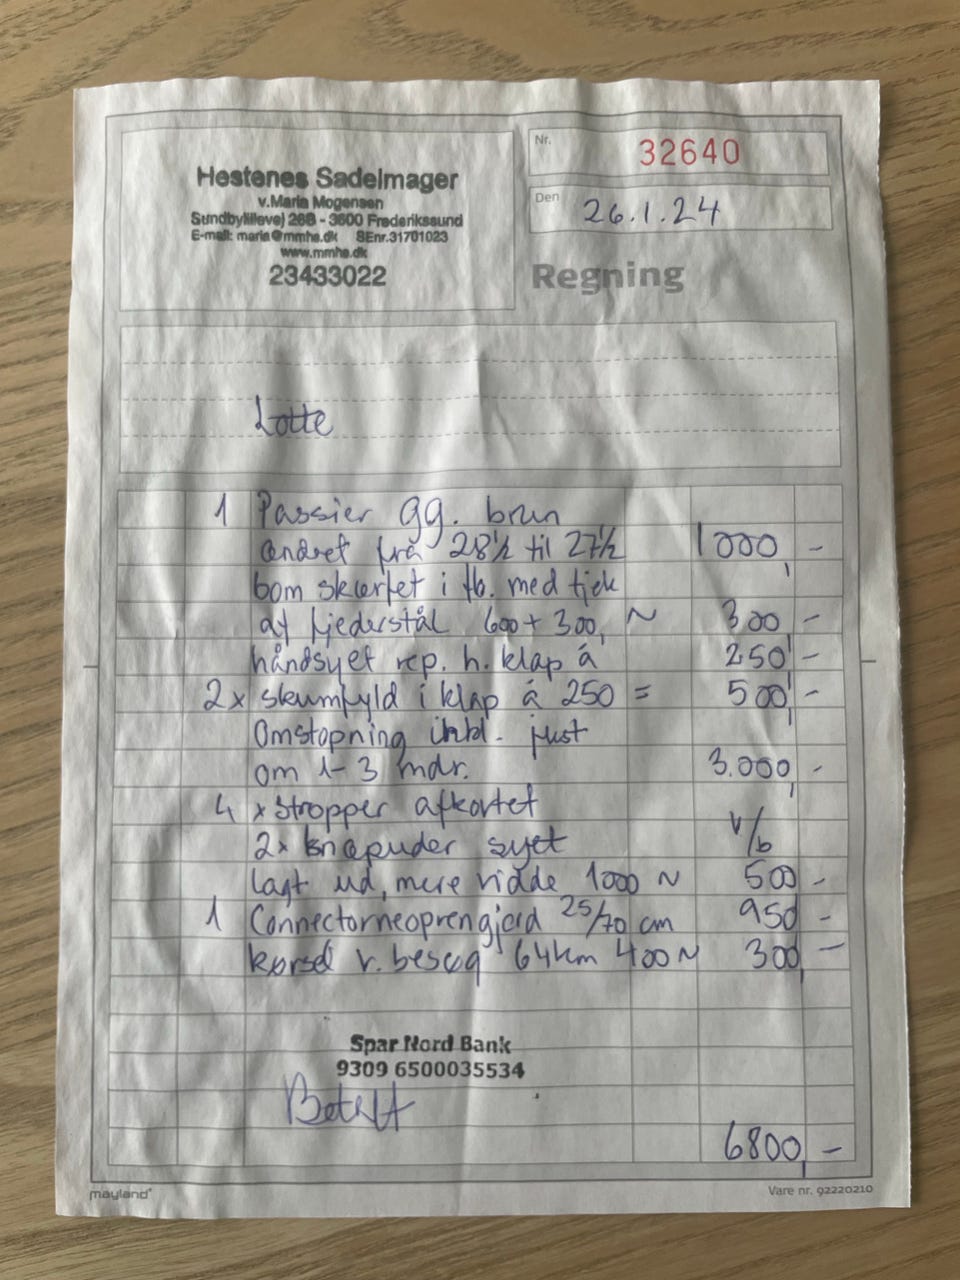 Hestenes Sadelmager
v. Maria Mogensen
Sundbylillevej 26B - 3600 Frederikssund
E-mail: maria@mmhs.dk SEnr.31701023
www.mmhs.dk
23433022
Nr. 32640
Den 26.1.24
Regning
Lotte
1 Passier gg. brun
ændret fra 28½ til 27½ 1000,-
bom skærtet i fb. med tjek
af fjederstål 600 + 300, ~ 300,-
håndsyet rep. h. klap á 250,-
2x skumfyld i klap á 250 = 500,-
Omstopning inkl. just
om 1-3 mdr. 3.000,-
4 x stropper afkortet
2x knæpuder syet v/b
lagt ud, mere vidde 1000 ~ 500,-
1 Connectorneoprengjord 25/70 cm 950,-
kørsel v. besøg 64km 400 ~ 300,-
Spar Nord Bank
9309 6500035534
Betalt
6800,-
mayland
Vare nr. 92220210